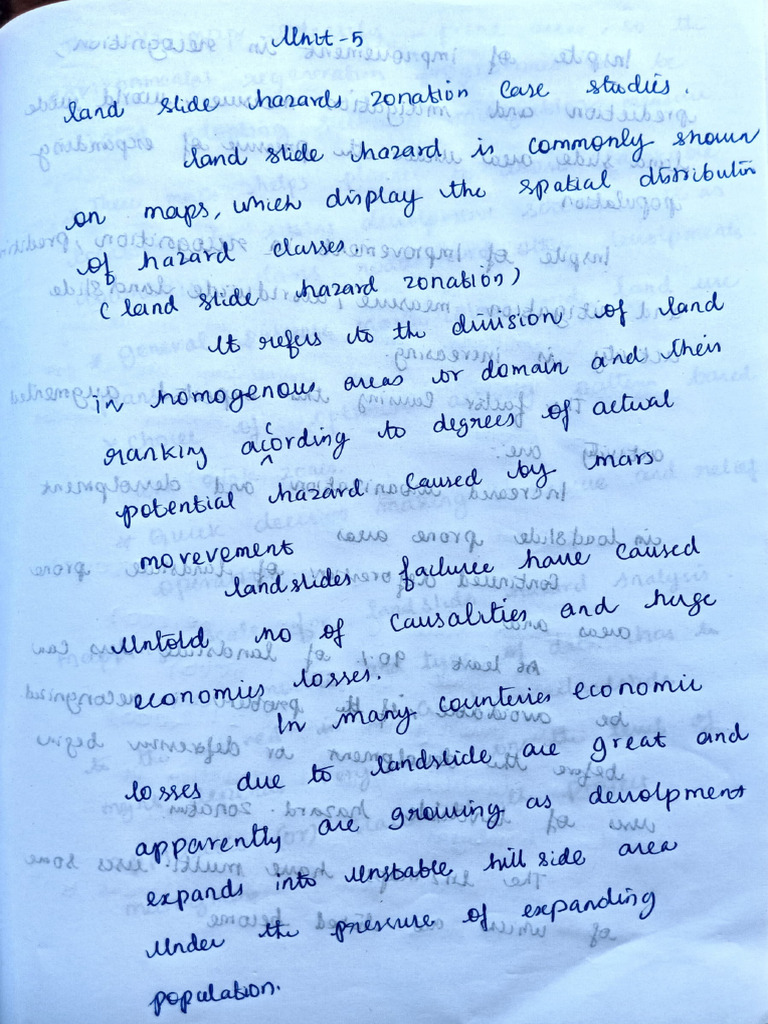 Unit-5
land slide hazards zonation case studies.
land slide hazard is commonly shown
on maps, which display the spatial distribution
of hazard classes.
(land slide hazard zonation)
It refers to the division of land
in homogenous areas or domain and their
ranking according to degrees of actual
potential hazard caused by mars
movement
landslides failure have caused
untold no of causalities and huge
economics losses.
In many counteries economic
losses due to landslide are great and
apparently are growing as devolpment
expands into unstable hill side area
under the pressure of expanding
population.